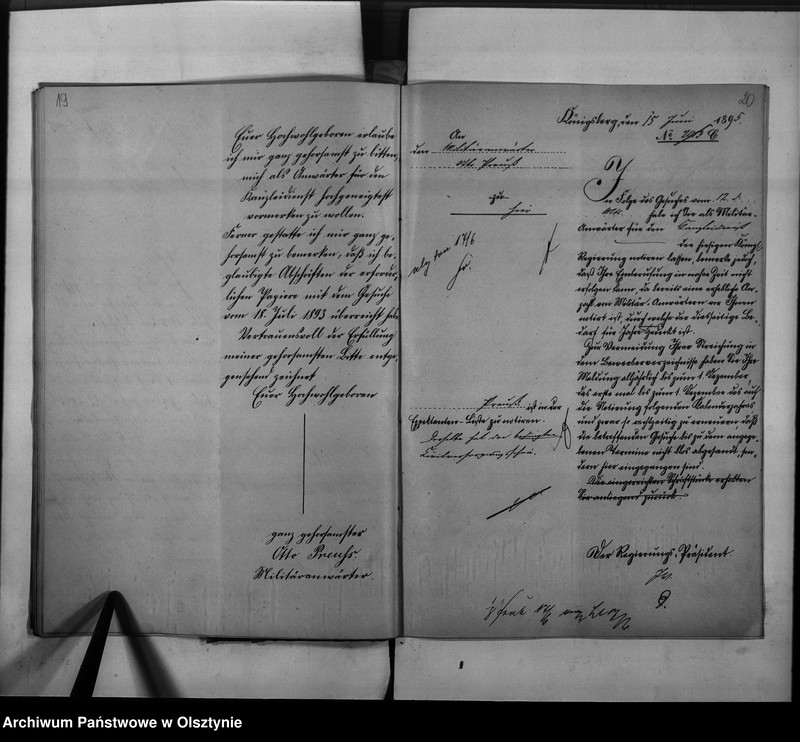 19
Euer Hochwohlgeboren erlaube
ich mir ganz gehorsamst zu bitten,
mich als Anwärter für den
Kanzleidienst hochgeneigtest
vormerken zu wollen.
Ferner gestatte ich mir ganz ge-
horsamst zu bemerken, daß ich be-
glaubigte Abschriften der erforder-
lichen Papiere mit dem Gesuche
vom 18. Juli 1893 überreicht habe.
Vertrauensvoll der Erfüllung
meiner gehorsamsten Bitte entge-
gensehend zeichnet
Euer Hochwohlgeboren
ganz gehorsamster
Otto Preuhs.
Militäranwärter.
20
Königsberg, den 15 Juni 1895.
An
den Militäranwärter
Otto Preuß
zu
hier
In Folge des Gesuches vom 12. d.
Mts. habe ich Sie als Militär-
Anwärter für den Kanzleidienst
der hiesigen Königl.
Regierung notiren lassen, bemerke jedoch,
daß Ihre Einberufung in naher Zeit nicht
erfolgen kann, da bereits eine erhebliche An-
zahl von Militär-Anwärtern vor Ihnen
notirt ist, durch welche der diesseitige Be-
darf für Jahre gedeckt ist.
Zur Vermeidung Ihrer Streichung in
dem Bewerberverzeichnisse haben Sie Ihre
Meldung alljährlich bis zum 1. Dezember,
das erste mal bis zum 1. Dezember des auf
die Notirung folgenden Kalenderjahres
und zwar so rechtzeitig zu erneuern, daß
die betreffenden Gesuche bis zu dem angege-
benen Termine nicht blos abgesandt, son-
dern hier eingegangen sind.
Die eingereichten Schriftstücke erhalten
Sie anliegend zurück.
Preuß ist in der
Expektanten-Liste zu notiren.
Derselbe hat den
Civilversorgungsschein.
Der Regierungs-Präsident.
Archiwum Państwowe w Olsztynie